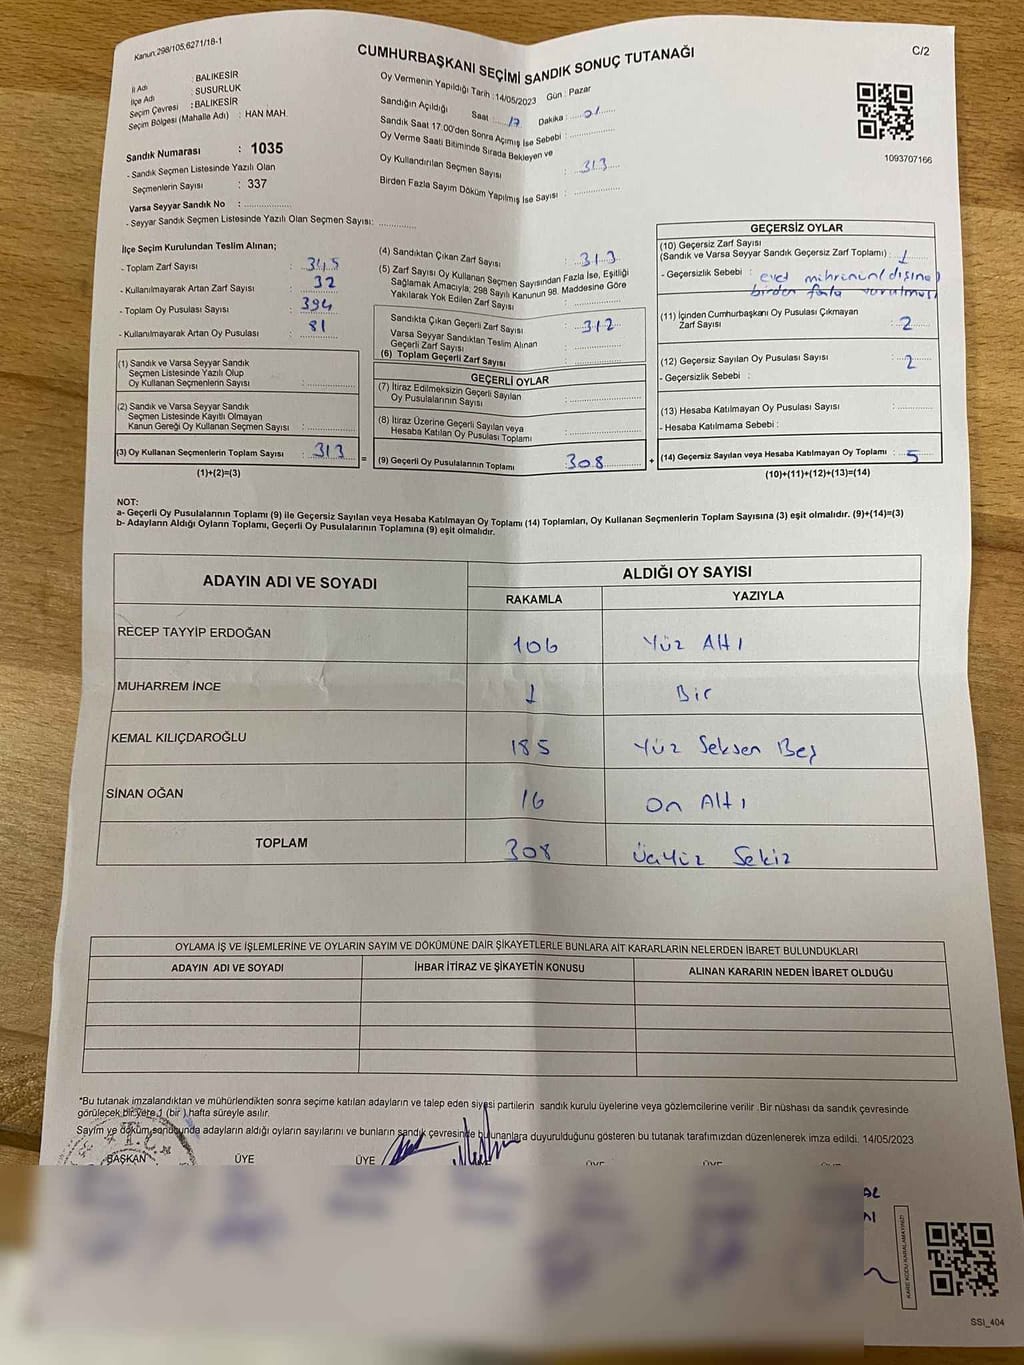 Kanun,298/105,6271/18-1
CUMHURBAŞKANI SEÇİMİ SANDIK SONUÇ TUTANAĞI
C/2
İl Adı : BALIKESİR
İlçe Adı : SUSURLUK
Seçim Çevresi : BALIKESİR
Seçim Bölgesi (Mahalle Adı) : HAN MAH.
Sandık Numarası : 1035
- Sandık Seçmen Listesinde Yazılı Olan
Seçmenlerin Sayısı : 337
Varsa Seyyar Sandık No :
- Seyyar Sandık Seçmen Listesinde Yazılı Olan Seçmen Sayısı:
Oy Vermenin Yapıldığı Tarih :14/05/2023 Gün : Pazar
Sandığın Açıldığı Saat : 17 Dakika : 01
Sandık Saat 17.00'den Sonra Açımış İse Sebebi :
Oy Verme Saati Bitiminde Sırada Bekleyen ve
Oy Kullandırılan Seçmen Sayısı : 313
Birden Fazla Sayım Döküm Yapılmış İse Sayısı :
1093707166
İlçe Seçim Kurulundan Teslim Alınan;
- Toplam Zarf Sayısı : 345
- Kullanılmayarak Artan Zarf Sayısı : 32
- Toplam Oy Pusulası Sayısı : 394
- Kullanılmayarak Artan Oy Pusulası : 81
(1) Sandık ve Varsa Seyyar Sandık
Seçmen Listesinde Yazılı Olup
Oy Kullanan Seçmenlerin Sayısı :
(2) Sandık ve Varsa Seyyar Sandık
Seçmen Listesinde Kayıtlı Olmayan
Kanun Gereği Oy Kullanan Seçmen Sayısı :
(3) Oy Kullanan Seçmenlerin Toplam Sayısı : 313
(1)+(2)=(3)
=
(4) Sandıktan Çıkan Zarf Sayısı : 313
(5) Zarf Sayısı Oy Kullanan Seçmen Sayısından Fazla İse, Eşitliği
Sağlamak Amacıyla; 298 Sayılı Kanunun 98. Maddesine Göre
Yakılarak Yok Edilen Zarf Sayısı :
Sandıkta Çıkan Geçerli Zarf Sayısı : 312
Varsa Seyyar Sandıktan Teslim Alınan
Geçerli Zarf Sayısı :
(6) Toplam Geçerli Zarf Sayısı :
GEÇERLİ OYLAR
(7) İtiraz Edilmeksizin Geçerli Sayılan
Oy Pusulalarının Sayısı :
(8) İtiraz Üzerine Geçerli Sayılan veya
Hesaba Katılan Oy Pusulası Toplamı :
(9) Geçerli Oy Pusulalarının Toplamı : 308
+
GEÇERSİZ OYLAR
(10) Geçersiz Zarf Sayısı
(Sandık ve Varsa Seyyar Sandık Geçersiz Zarf Toplamı) : 1
- Geçersizlik Sebebi : evet mührünün(dışına)
birden fazla vurulması
(11) İçinden Cumhurbaşkanı Oy Pusulası Çıkmayan
Zarf Sayısı : 2
(12) Geçersiz Sayılan Oy Pusulası Sayısı : 2
- Geçersizlik Sebebi :
(13) Hesaba Katılmayan Oy Pusulası Sayısı :
- Hesaba Katılmama Sebebi :
(14) Geçersiz Sayılan veya Hesaba Katılmayan Oy Toplamı : 5
(10)+(11)+(12)+(13)=(14)
NOT:
a- Geçerli Oy Pusulalarının Toplamı (9) ile Geçersiz Sayılan veya Hesaba Katılmayan Oy Toplamı (14) Toplamları, Oy Kullanan Seçmenlerin Toplam Sayısına (3) eşit olmalıdır. (9)+(14)=(3)
b- Adayların Aldığı Oyların Toplamı, Geçerli Oy Pusulalarının Toplamına (9) eşit olmalıdır.
ADAYIN ADI VE SOYADI ALDIĞI OY SAYISI
RAKAMLA YAZIYLA
RECEP TAYYİP ERDOĞAN 106 Yüz Altı
MUHARREM İNCE 1 Bir
KEMAL KILIÇDAROĞLU 185 Yüz Seksen Beş
SİNAN OĞAN 16 On Altı
TOPLAM 308 Üçyüz Sekiz
OYLAMA İŞ VE İŞLEMLERİNE VE OYLARIN SAYIM VE DÖKÜMÜNE DAİR ŞİKAYETLERLE BUNLARA AİT KARARLARIN NELERDEN İBARET BULUNDUKLARI
ADAYIN ADI VE SOYADI İHBAR İTİRAZ VE ŞİKAYETİN KONUSU ALINAN KARARIN NEDEN İBARET OLDUĞU
*Bu tutanak imzalandıktan ve mühürlendikten sonra seçime katılan adayların ve talep eden siyasi partilerin sandık kurulu üyelerine veya gözlemcilerine verilir .Bir nüshası da sandık çevresinde
görülecek bir yere 1 (bir ) hafta süreyle asılır.
Sayım ve döküm sonucunda adayların aldığı oyların sayılarını ve bunların sandık çevresinde bulunanlara duyurulduğunu gösteren bu tutanak tarafımızdan düzenlenerek imza edildi. 14/05/2023
T.C.
BAŞKAN ÜYE ÜYE ÜYE ÜYE ÜYE
KARE KODU KARALAMAYINIZ!
SSI_404